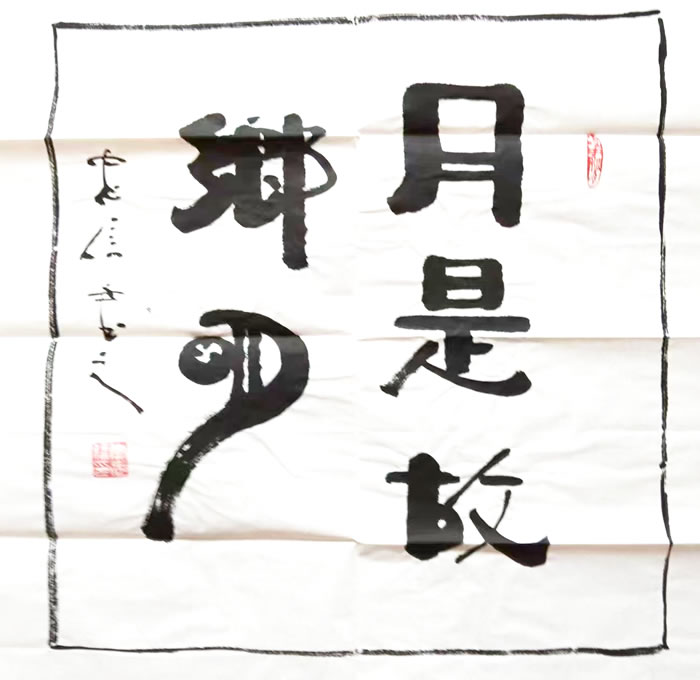 月是故
鄉明